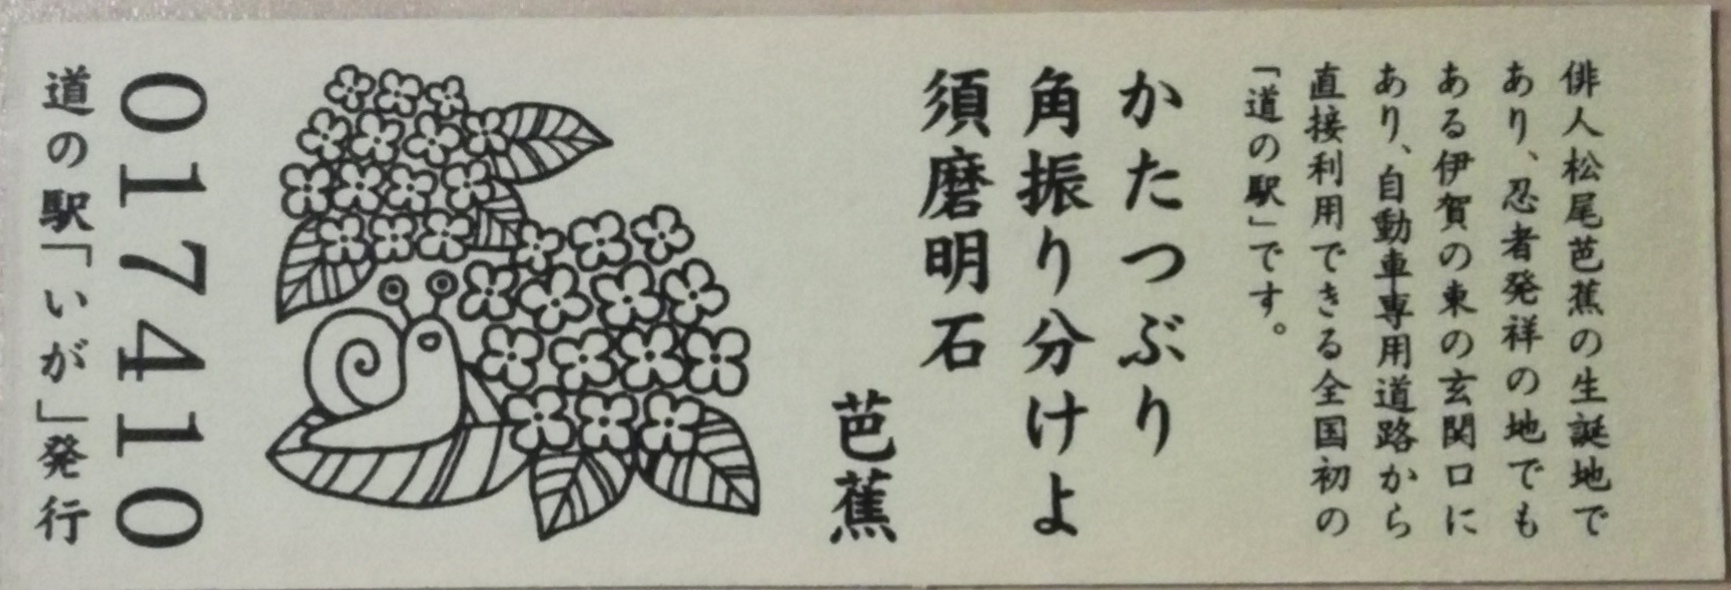 俳人松尾芭蕉の生誕地で
あり、忍者発祥の地でも
ある伊賀の東の玄関口に
あり、自動車専用道路から
直接利用できる全国初の
「道の駅」です。
かたつぶり
角振り分けよ
須磨明石
芭蕉
017410
道の駅「いが」発行